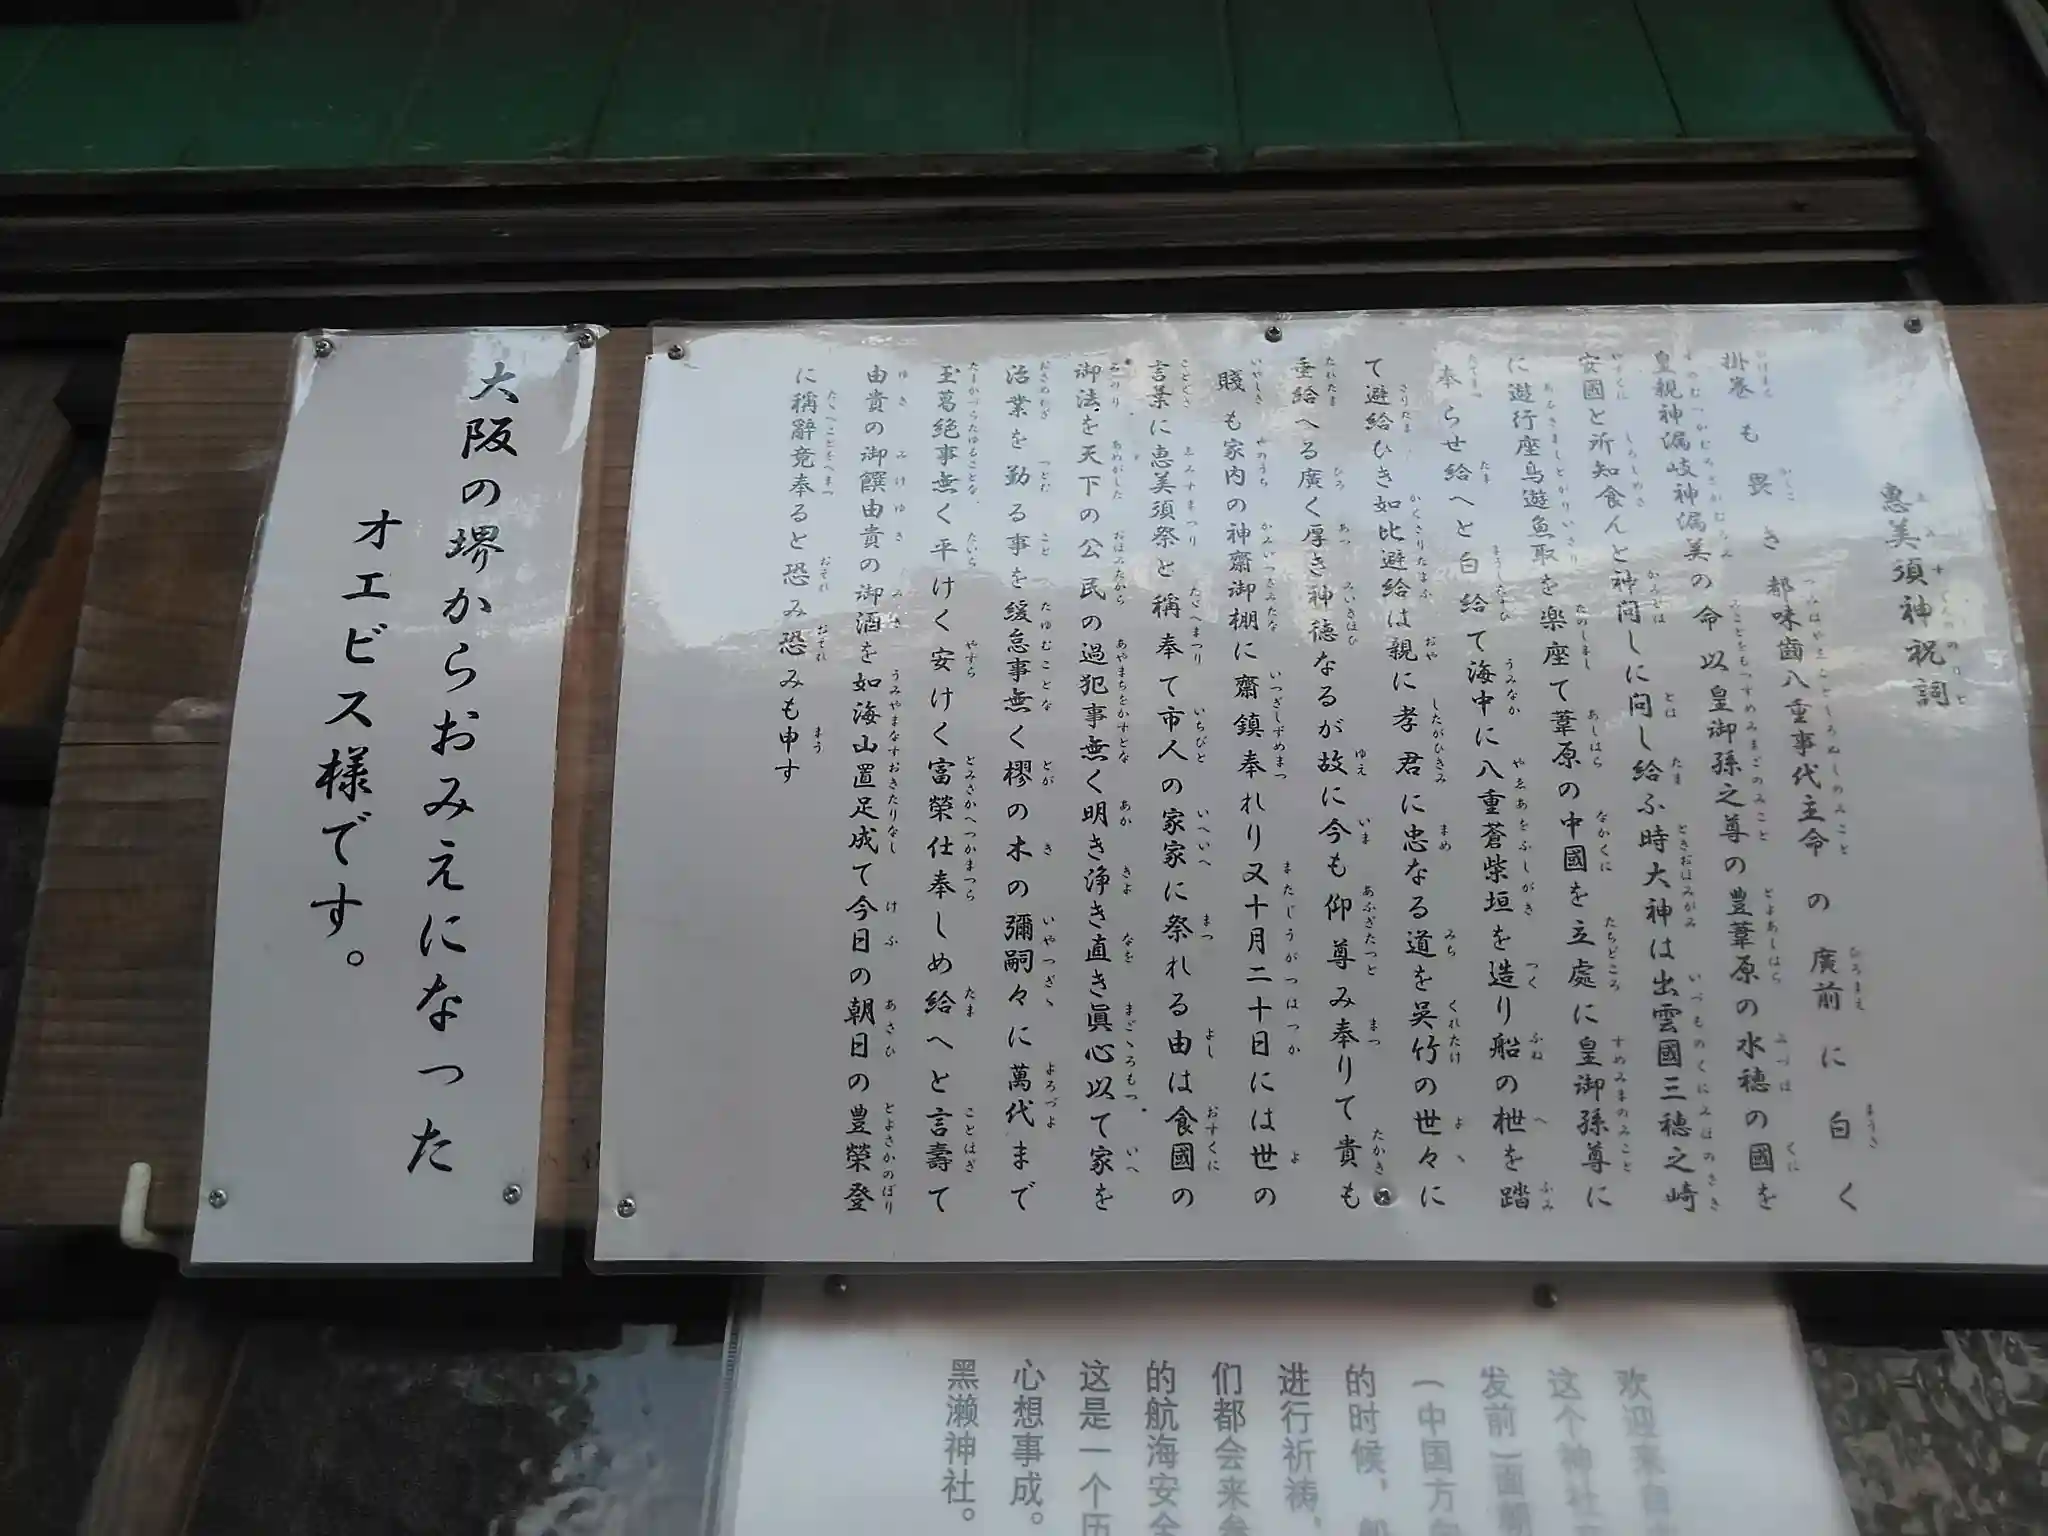 惠美須神祝詞
掛巻も畏き都味齒八重事代主命の廣前に白く
皇親神漏岐神漏美の命以皇御孫之尊の豊葦原の水穂の國を
安國と所知食んと神問しに問し給ふ時大神は出雲國三穂之崎
に遊行座鳥遊魚取を楽座て葦原の中國を立處に皇御孫尊に
奉らせ給へと白給て海中に八重蒼柴垣を造り船の枻を踏
て避給ひき如比避給は親に孝君に忠なる道を呉竹の世々に
垂給へる廣く厚き神徳なるが故に今も仰尊み奉りて貴も
賤も家内の神齋御棚に齋鎮奉れり又十月二十日には世の
言葉に恵美須祭と稱奉て市人の家家に祭れる由は食國の
御法を天下の公民の過犯事無く明き浄き直き眞心以て家を
治業を勤る事を緩怠事無く樛の木の彌嗣々に萬代まで
玉葛絶事無く平けく安けく富榮仕奉しめ給へと言壽て
由貴の御饌由貴の御酒を如海山置足成て今日の朝日の豊榮登
に稱辭竟奉ると恐み恐みも申す
大阪の堺からおみえになった
オエビス様です。
欢迎来
这个神社
发前）面朝
（中国方
的时候，船
进行祈祷，
们都会来参
的航海安全
这是一个历
心想事成。
黑濑神社。